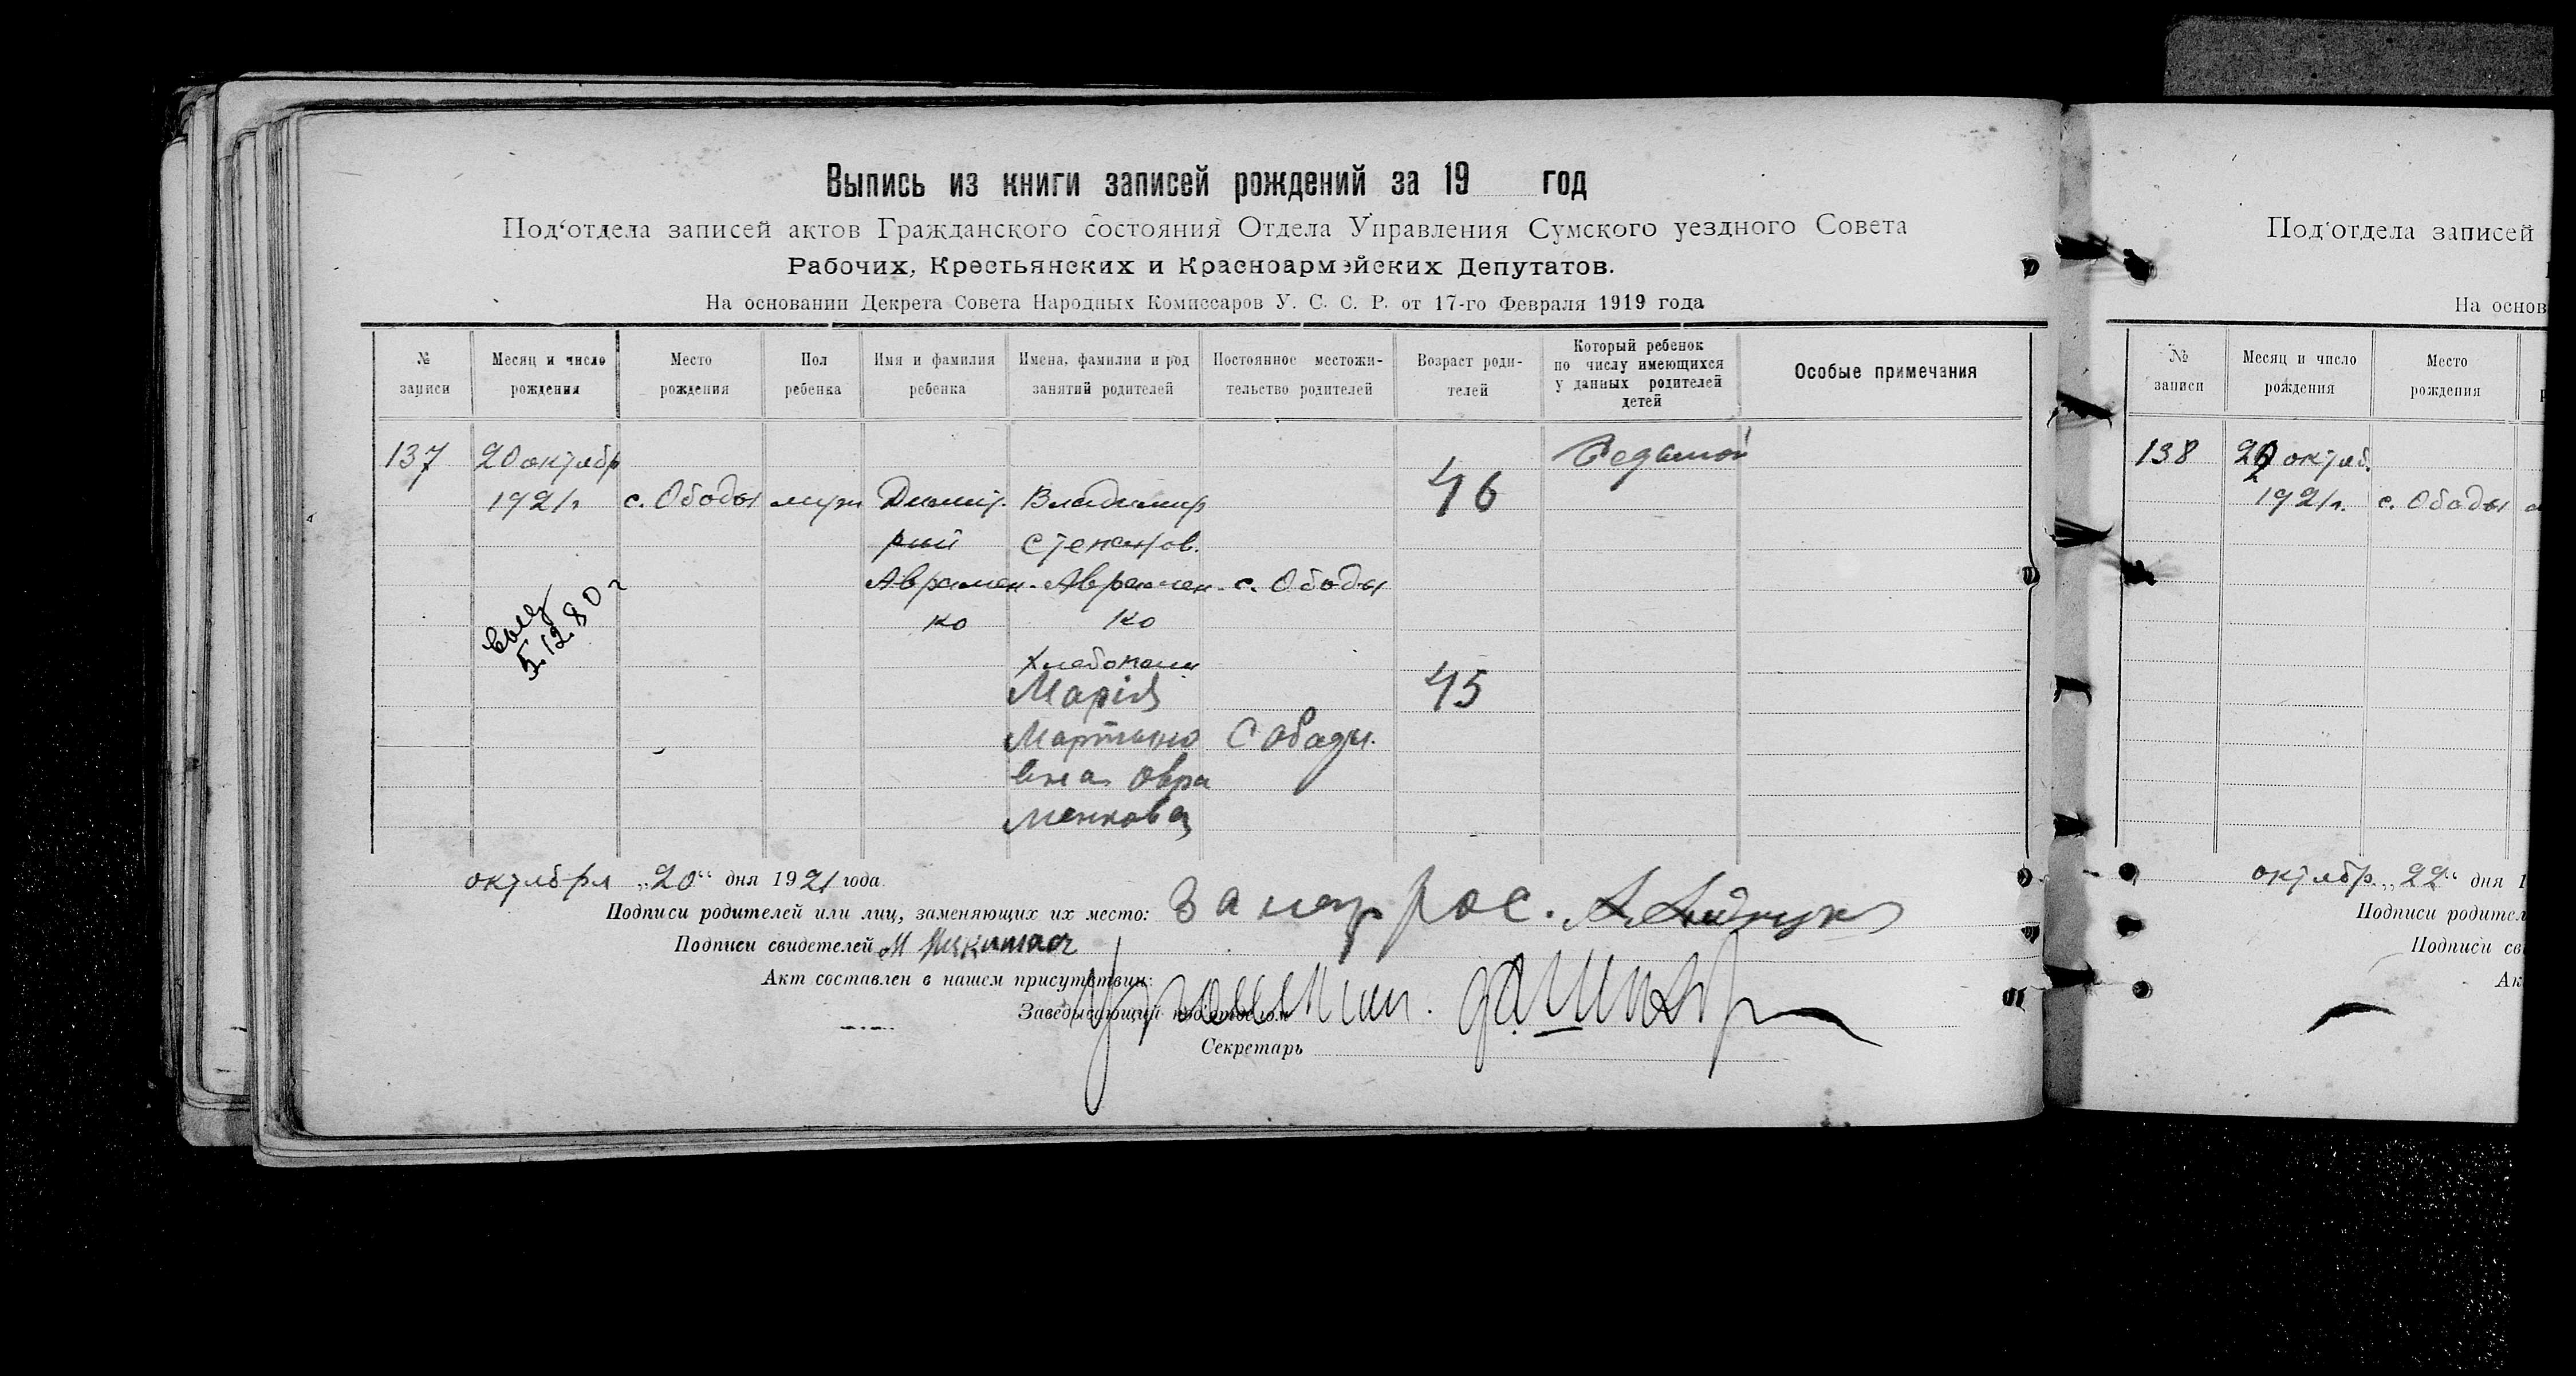 Выпись из книги записей рождений за 19 год
Под'отдела записей актов Гражданского состояния Отдела Управления Сумского уездного Совета
Рабочих, Крестьянских и Красноармейских Депутатов.
На основании Декрета Совета Народных Комиссаров У. С. С. Р. от 17-го Февраля 1919 года
№ записи
Месяц и число рождения
Место рождения
Пол ребенка
Имя и фамилия ребенка
Имена, фамилии и род занятий родителей
Постоянное местожительство родителей
Возраст родителей
Который ребенок по числу имеющихся у данных родителей детей
Особые примечания
137 20 октябр Седьмой
1921 г. с. Ободы муж Димит. Владимир 46
рий Степанов.
Аврамен- Аврамен- с. Ободы
ко ко
5.12.80 г
Хлебопаш
Марія 45
Мартино С Ободы.
вна Овра
менкова
октября „20“ дня 1921 года.
Подписи родителей или лиц, заменяющих их место: За негр рос.
Подписи свидетелей
Акт составлен в нашем присутствии:
Заведывающий под'отделом
Секретарь
Под'отдела записей
На основ
№ записи
Месяц и число рождения
Место рождения
138 22 октяб.
1921 г. с. Ободы
октябр. „22“ дня 1
Подписи родител
Подписи св
Ак